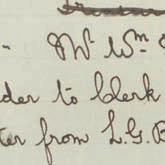 " Mr Wm
der to Clerk
er from L.G.B